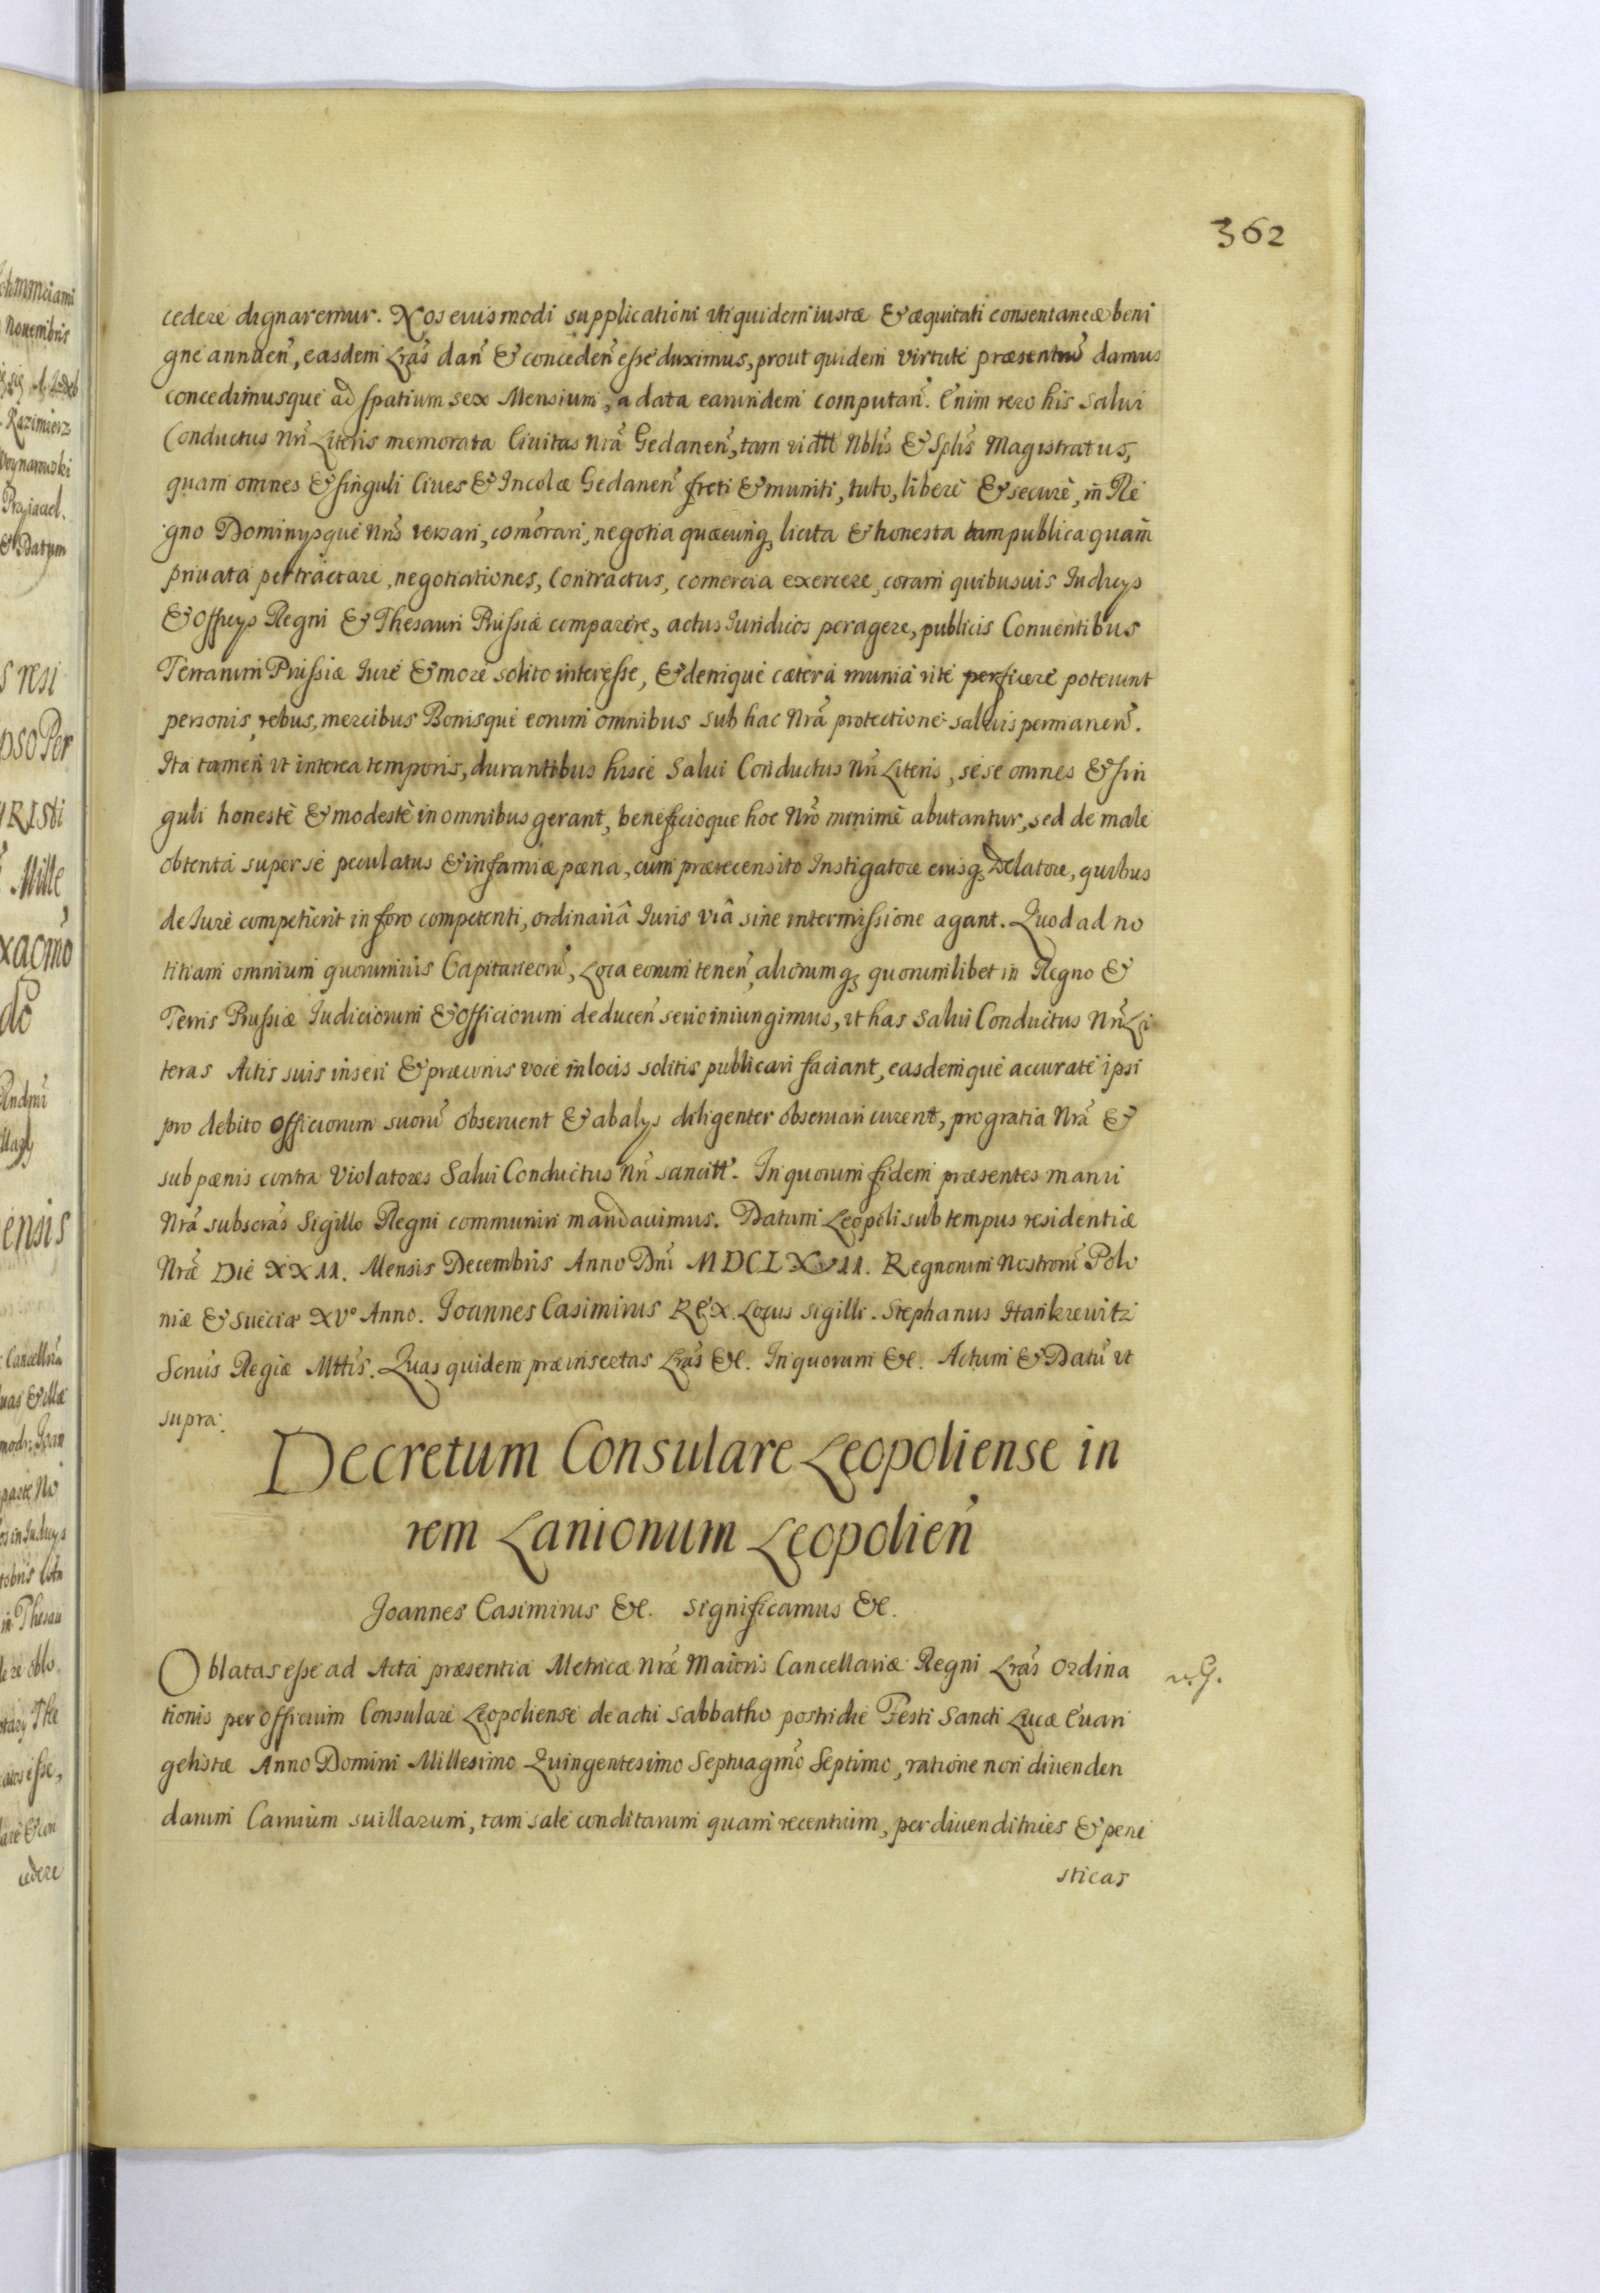 362
cedere dignaremur. Nos eiusmodi supplicationi uti quidem iustæ & æquitati consentaneæ beni
gne annuen̄, easdem Lr̄as dan̄ & conceden̄ esse duximus, prout quidem virtute præsentiū damus
concedimusque ad spatium sex Mensium, a data earundem computan̄. Enim vero his Salui
Conductus Nrī Literis memorata Ciuitas Nrā Gedanen̄, tam vidtt Nblīs & Splīs Magistratus,
quam omnes & singuli Ciues & Incolæ Gedanen̄ freti & muniti, tuto, liberè & securè, in Re
gno Dominysque Nrīs versari, com̄orari, negotia quæcunq, licita & honesta tam publica quam
priuata pertractare, negotiationes, Contractus, comercia exercere, coram quibusuis Iudicys
& Officys Regni & Thesauri Prussiæ comparere, actus Iuridicos peragere, publicis Conuentibus
Terrarum Prussiæ Iure & more solito interesse, & denique cætera munia rite perficere poterunt
personis, rebus, mercibus Bonisque eorum omnibus sub hac Nrā protectione saluis permanen̄.
Ita tamen ut interea temporis, durantibus hisce Salui Conductus Nrī Literis, sese omnes & sin
guli honestè & modestè in omnibus gerant, beneficioque hoc Nrō minimè abutantur, sed de male
obtenta super se peculatus & infamiæ pœna, cum prærecensito Instigatore eiusq, Delatore, quibus
de Iure competierit in foro competenti, ordinariâ Iuris viâ sine intermissione agant. Quod ad no
titiam omnium quorumuis Capitaneorū, Loca eorum tenen̄, aliorumq, quorumlibet in Regno &
Terris Prussiæ Iudiciorum & Officiorum deducen̄ serio iniungimus, ut has Salui Conductus Nrī Li
teras Actis suis inseri & præconis voce in locis solitis publicari faciant, easdemque accurate ipsi
pro debito Officiorum suorū obseruent & ab alys diligenter obseruari curent, pro gratia Nrā &
sub pœnis contra Violatores Salui Conductus Nrī sancitt. In quorum fidem præsentes manu
Nrā subscrās Sigillo Regni communiri mandauimus. Datum Leopoli sub tempus residentiæ
Nrǣ Die XXII. Mensis Decembris Anno Dnī MDCLXVII. Regnorum Nostrorū Polo
niæ & Sueciæ XVº Anno. Joannes Casimirus REX. Locus Sigilli. Stephanus Hankiewitz
Scrius Regiæ Mttis. Quas quidem præinsertas Lr̄as &c. In quorum &c. Actum & Datū ut
supra.
Decretum Consulare Leopoliense in
rem Lanionum Leopolien̄
Joannes Casimirus &c. Significamus &c.
Oblatas esse ad Acta præsentia Metricæ Nrǣ Maioris Cancellariæ Regni Lr̄as Ordina
tionis per Officium Consulare Leopoliense de actu Sabbatho postridie Festi Sancti Lucæ Euan
gelistæ Anno Domini Millesimo Quingentesimo Septuagmō Septimo, ratione non diuenden
darum Carnium suillarum, tam sale conditarum quam recentium, per diuenditrices & pene
sticas